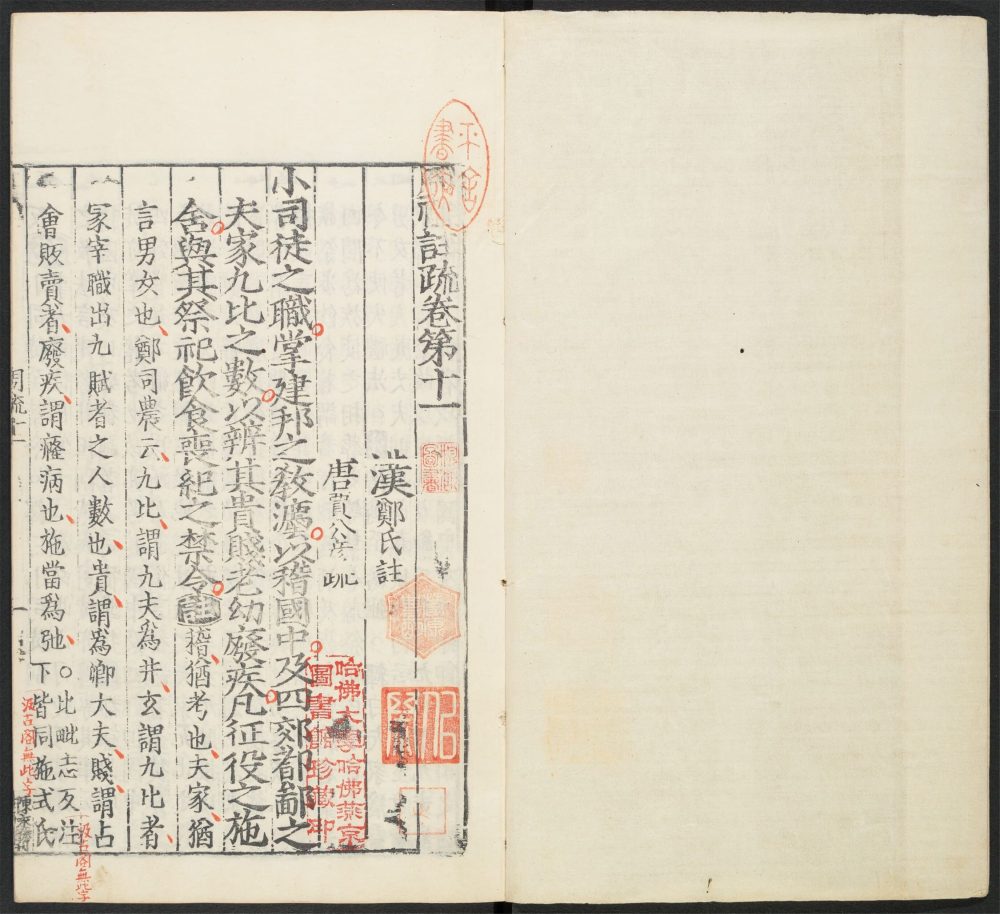 周禮註疏卷第十一
漢鄭氏註
唐賈公彥疏
小司徒之職掌建邦之教灋以稽國中及四郊都鄙之
夫家九比之數以辨其貴賤老幼廢疾凡征役之施
舍與其祭祀飲食喪紀之禁令註稽猶考也夫家猶
言男女也鄭司農云九比謂九夫爲井玄謂九比者
冢宰職出九賦者之人數也貴謂爲卿大夫賤謂占
會販賣者廢疾謂癃病也施當爲弛○比毗志反注
下皆同施式氏
周疏十一
哈佛大學哈佛燕京
圖書館珍藏印
汲古閣無此字
汲古閣無此字